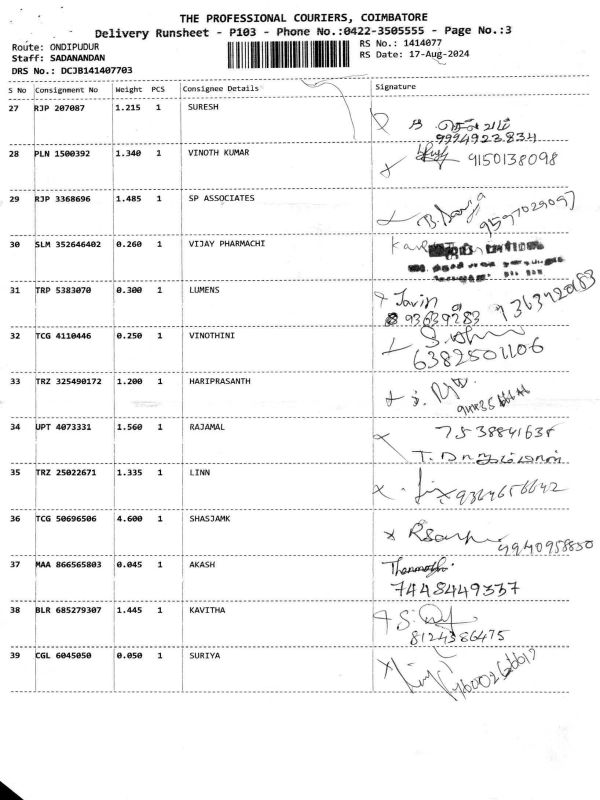 THE PROFESSIONAL COURIERS, COIMBATORE
Delivery Runsheet - P103 - Phone No.:0422-3505555 - Page No.:3
Route: ONDIPUDUR
RS No.: 1414077
Staff: SADANANDAN
RS Date: 17-Aug-2024
DRS No.: DCJB141407703
S No Consignment No Weight PCS Consignee Details Signature
27 RJP 207087 1.215 1 SURESH
9994923834
28 PLN 1500392 1.340 1 VINOTH KUMAR 9150138098
29 RJP 3368696 1.485 1 SP ASSOCIATES 9597029097
30 SLM 352646402 0.260 1 VIJAY PHARMACHI
31 TRP 5383070 0.300 1 LUMENS
32 TCG 4110446 0.250 1 VINOTHINI
6382501106
33 TRZ 325490172 1.200 1 HARIPRASANTH
34 UPT 4073331 1.560 1 RAJAMAL
35 TRZ 25022671 1.335 1 LINN 9364656642
36 TCG 50696506 4.600 1 SHASJAMK
4940958850
37 MAA 866565803 0.045 1 AKASH
7448449337
38 BLR 685279307 1.445 1 KAVITHA
8124386475
39 CGL 6045050 0.050 1 SURIYA